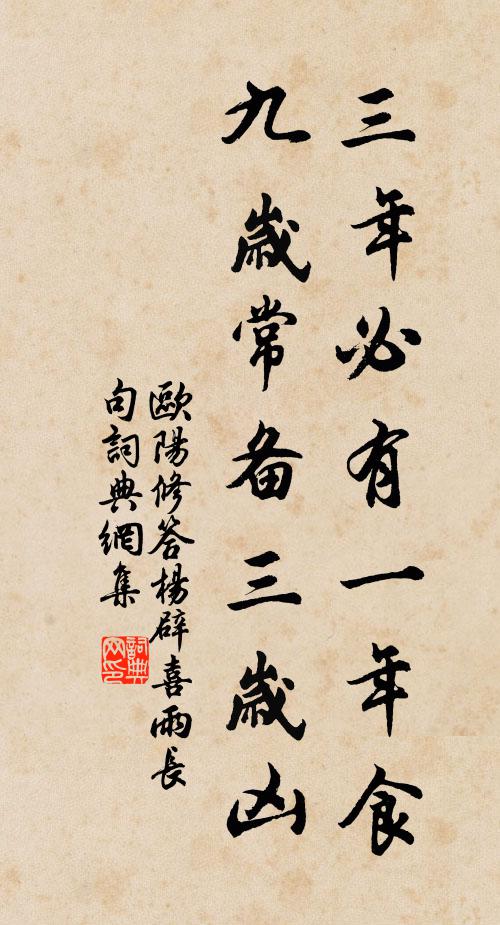 三年必有一年食
九歲常备三歲凶
歐陽修答楊辟喜雨長
句詞典網集
詞典
网印